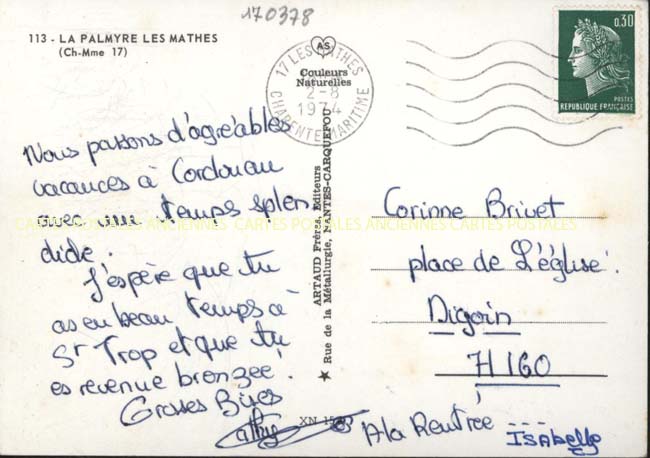 170378
113 - LA PALMYRE LES MATHES
(Ch-Mme 17)
AS
Couleurs
Naturelles
17 LES MATHES
2-8
1974
CHARENTE MARITIME
0,30
POSTES
REPUBLIQUE FRANÇAISE
Nous passons d'agréables
vacances à Cordouan
avec un temps splen
dide.
J'espère que tu
as eu beau temps à
St Trop et que tu
es revenue bronzée.
Grosses Bises
Cathy
A la Rentrée ...
ISABelle
ARTAUD Frères, Editeurs
Rue de la Métallurgie, NANTES-CARQUEFOU
XN
Corinne Brivet
place de L'église.
Digoin
71160
CARTES POSTALES ANCIENNES CARTES POSTALES ANCIENNES CARTES POSTALES